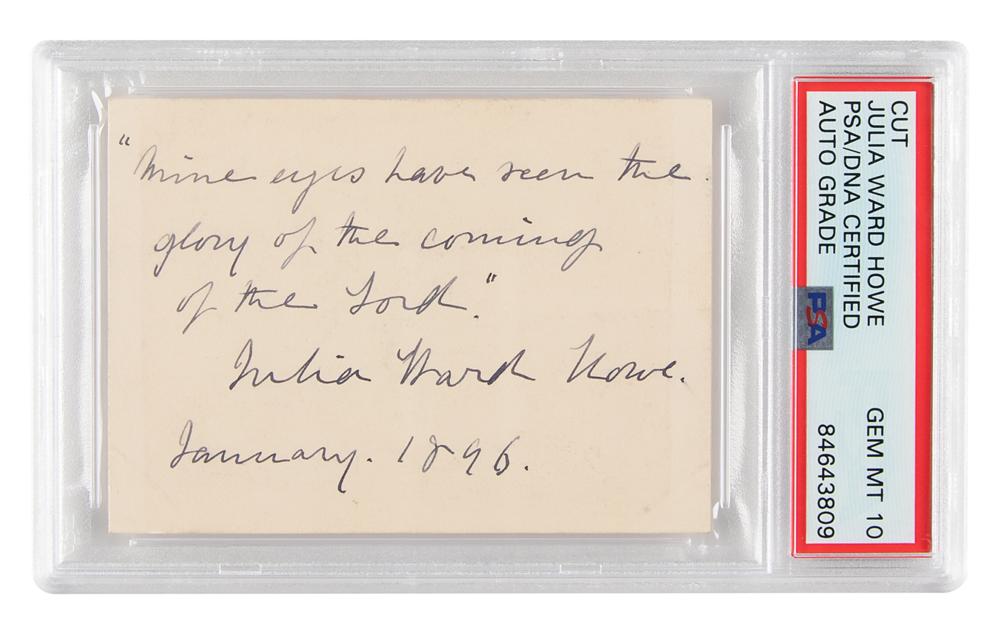 "Mine eyes have seen the
glory of the coming
of the Lord."
Julia Ward Howe.
January. 1896.
CUT
JULIA WARD HOWE
PSA/DNA CERTIFIED
AUTO GRADE
GEM MT 10
84643809
PSA